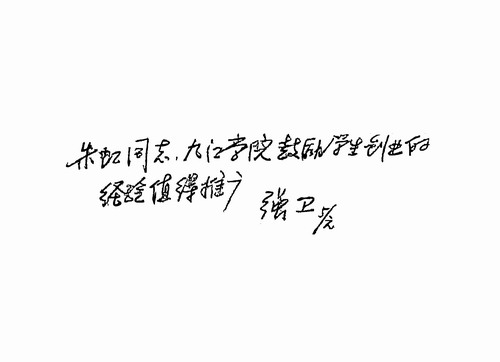 朱虹同志，九江学院鼓励学生创业的
经验值得推广
强卫